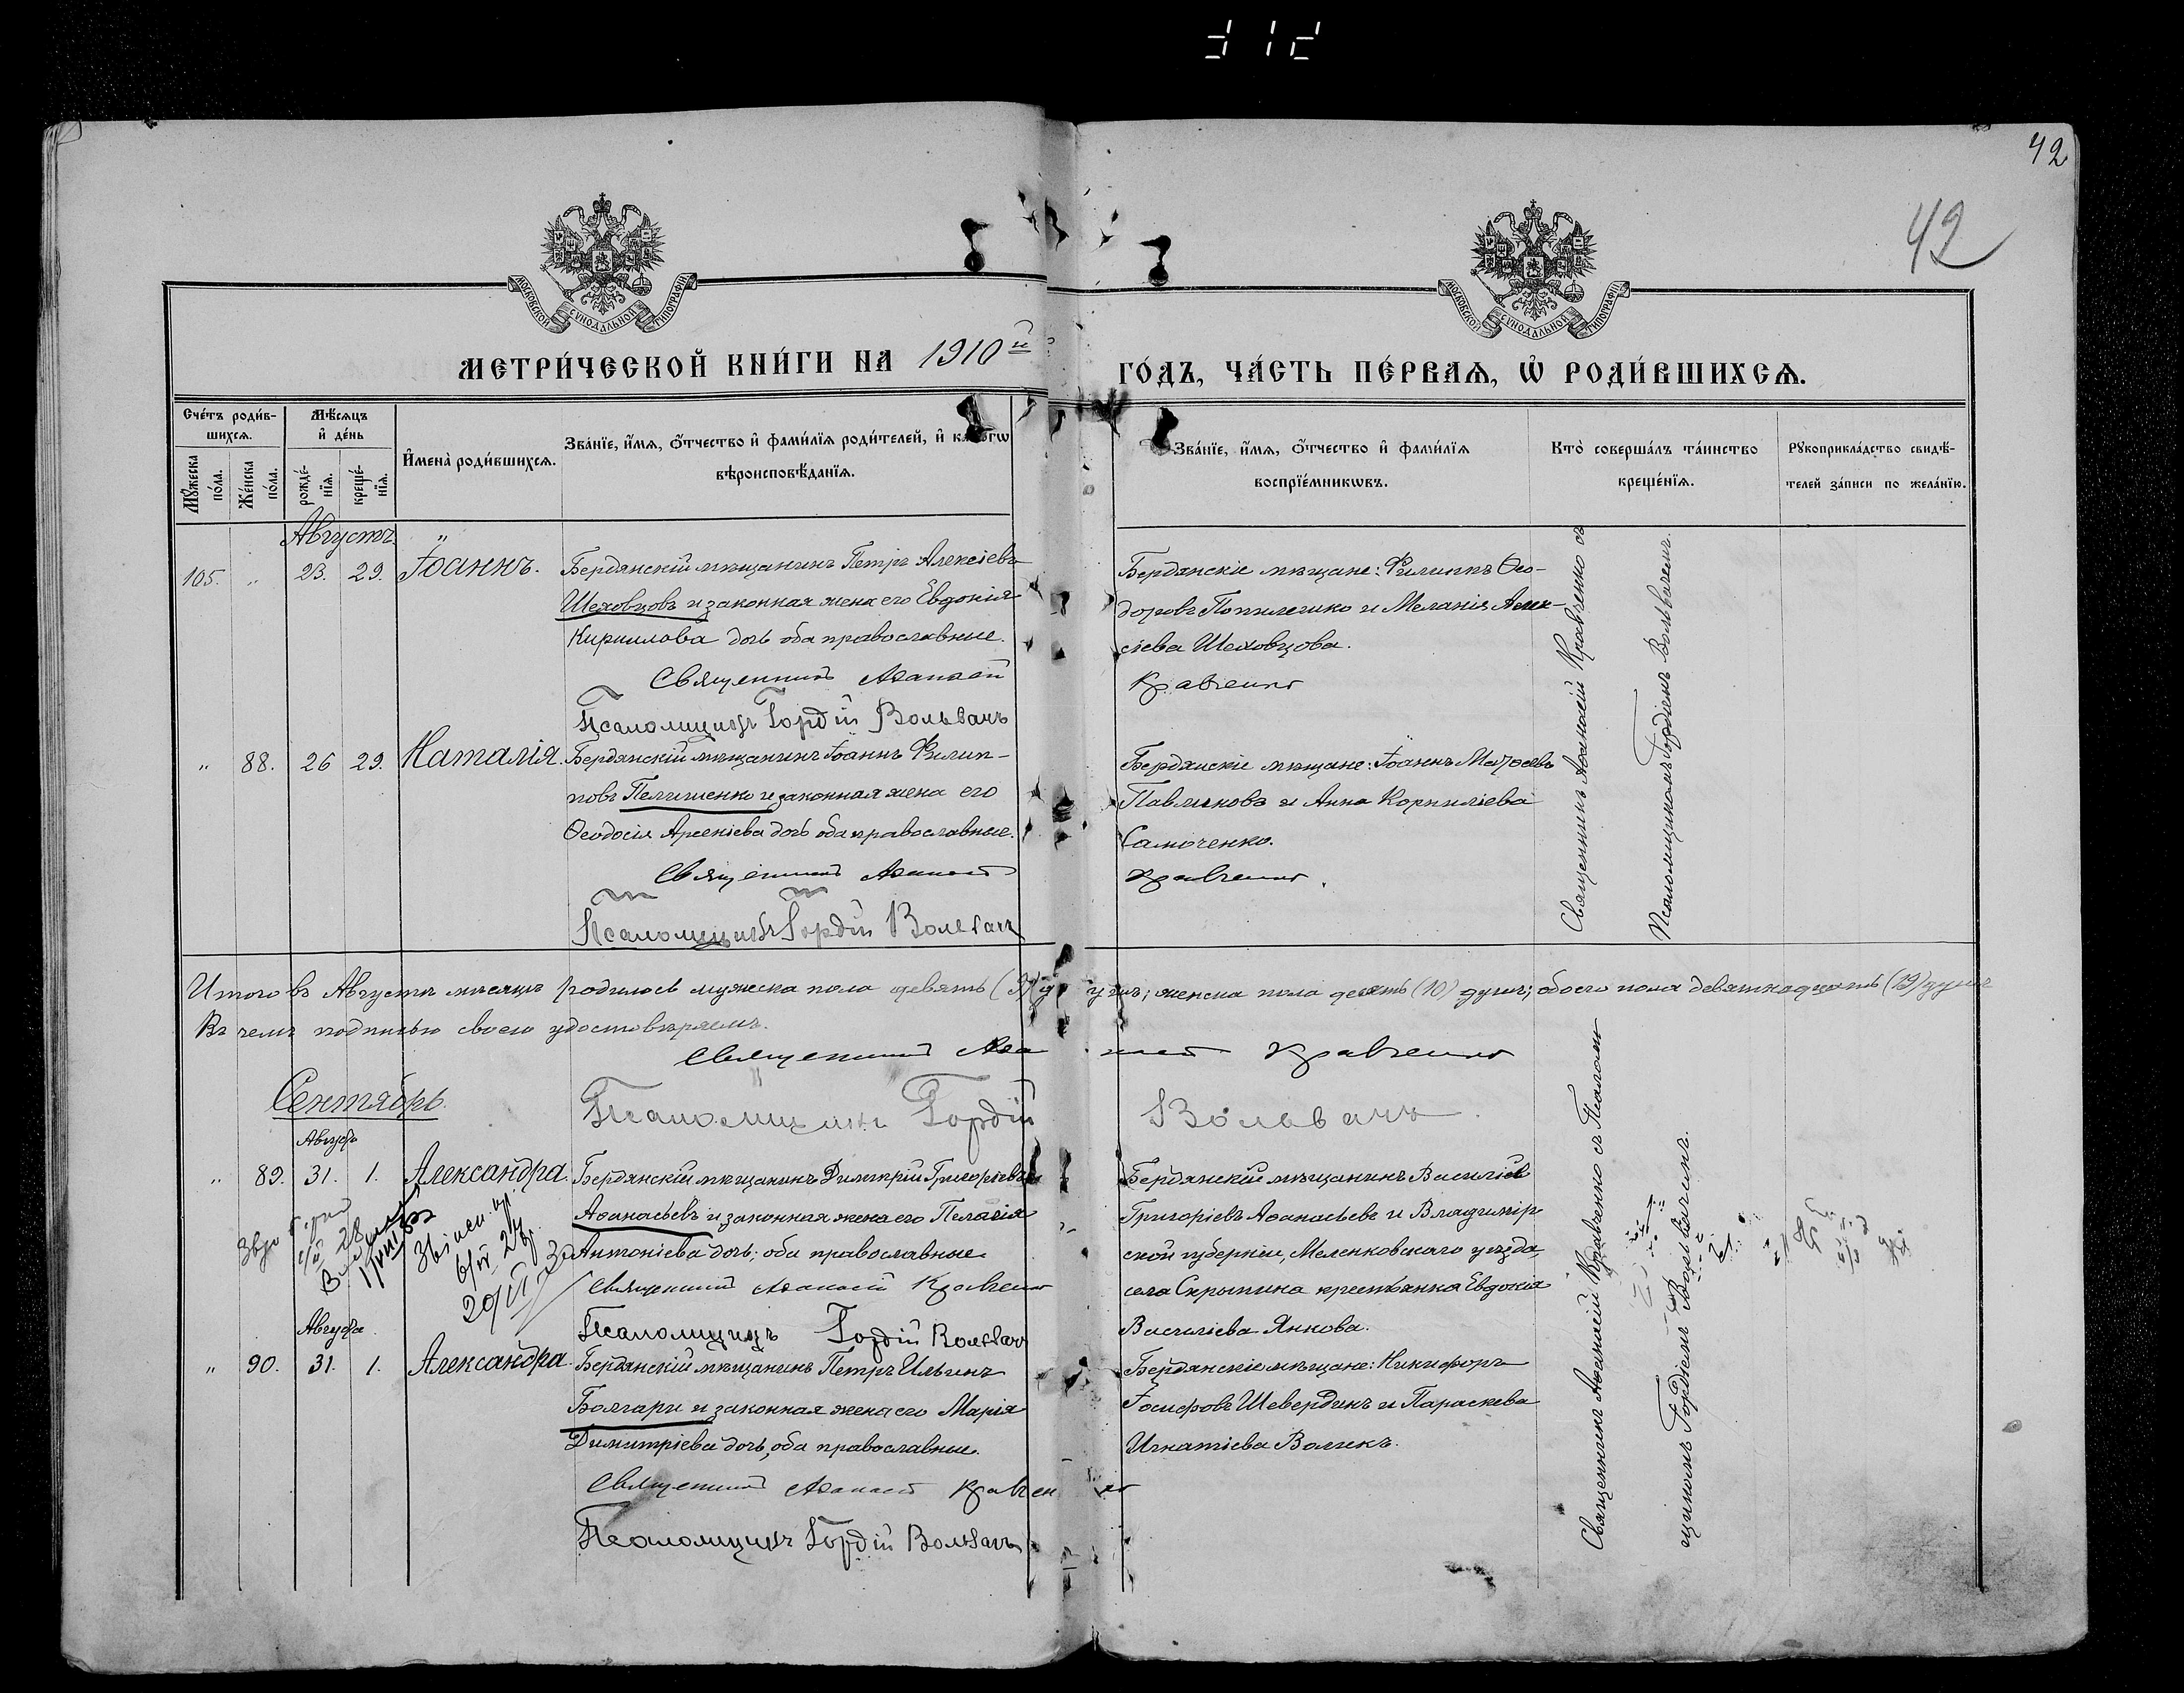 42
42
МОСКОВСКОЙ СУНОДАЛЬНОЙ ТИПОГРАФІИ
МОСКОВСКОЙ СУНОДАЛЬНОЙ ТИПОГРАФІИ
МЕТРИ́ЧЕСКОЙ КНИ́ГИ НА 1910й
ГО́ДЪ, ЧА́СТЬ ПЕ́РВАЯ, Ѿ РОДИ́ВШИХСЯ.
Сче́тъ роди́в-
шихся.
Мꙋ́жеска по́ла.
Же́нска по́ла.
Мѣ́сяцъ и҆ де́нь
рожде́-
нїя.
креще́-
нїя.
И҆мена̀ роди́вшихся.
Зва́нїе, и҆́мя, ѻ҆́тчество и҆ фами́лїя роди́телей, и҆ како́гѡ
вѣроисповѣ́данїя.
Зва́нїе, и҆́мя, ѻ҆́тчество и҆ фами́лїя
воспрїе́мникѡвъ.
Кто̀ соверша́лъ та́инство
креще́нїя.
Рꙋкоприкла́дство свидѣ́-
телей за́писи по жела́нїю.
Августъ
105. " 23. 29. Іоаннъ.
Бердянскій мѣщанинъ Петръ Алексіевъ
Шеховцовъ и законная жена его Евдокія
Кириллова дочь оба православные.
Священникъ Аѳанасій
Кравченко
Псаломщикъ Гордій Вольвачъ
Бердянскіе мѣщане: Филиппъ Ѳео-
доровъ и Меланія Алек-
сіева Шеховцова.
Священникъ Аѳанасій Кравченко съ
Псаломщикомъ Гордіемъ Вольвачемъ.
" 88. 26 29. Наталія.
Бердянскій мѣщанинъ Іоаннъ Филип-
повъ Пелишенко и законная жена его
Ѳеодосія Арсеніева дочь оба православные.
Священникъ Аѳанасій
Кравченко.
Псаломщикъ Гордій Вольвачъ
Бердянскіе мѣщане: Іоаннъ
Павликовъ и Анна Корниліева
Самоченко.
Итого въ Августѣ мѣсяцѣ родилось мужеска пола девять (9) душъ; женска пола десять (10) душъ; обоего пола девятнадцать (19) душъ
Въ чемъ подписью своею удостовѣряемъ.
Священникъ Аѳанасій Кравченко
Сентябрь.
Псаломщикъ Гордій Вольвачъ.
Августа
" 89. 31. 1. Александра.
Бердянскій мѣщанинъ Димитрій Григоріевъ
Аѳанасьевъ и законная жена его Пелагія
Антоніева дочь; оба православные.
Священникъ Аѳанасій Кравченко
Псаломщикъ Гордій Вольвачъ
Бердянскій мѣщанинъ Василій
Григоріевъ Аѳанасьевъ и Владимір-
ской губерніи, Меленковскаго уѣзда,
села Скрыпина крестьянка Евдокія
Василіева Янкова.
Священникъ Аѳанасій Кравченко съ Псалом-
щикомъ Гордіемъ Вольвачемъ.
Августа
" 90. 31. 1. Александра.
Бердянскій мѣщанинъ Петръ Ильинъ
Болгари и законная жена его Марія
Димитріева дочь, оба православные.
Священникъ Аѳанасій Кравченко
Псаломщикъ Гордій Вольвачъ
Бердянскіе мѣщане: Никифоръ
Іосифовъ Шевердинъ и Параскева
Игнатіева Воликъ.